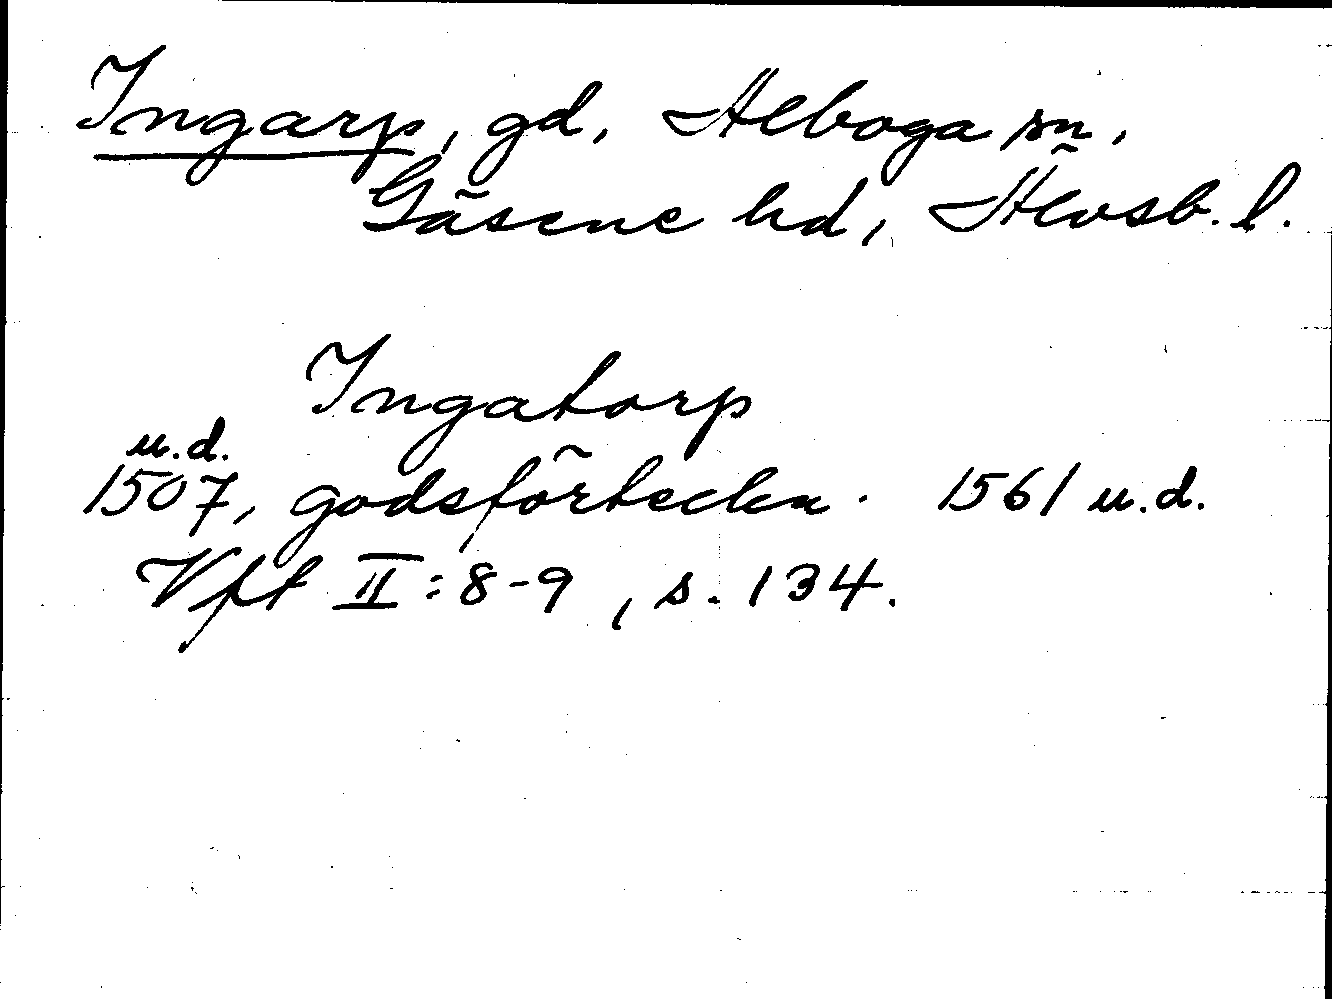 Ingarp, gd, Alboga sn,
Gäsene hd, Älvsb. l.
Ingatorp
u.d.
1507, godsförteckn. 1561 u.d.
Vft II:8-9, s. 134.